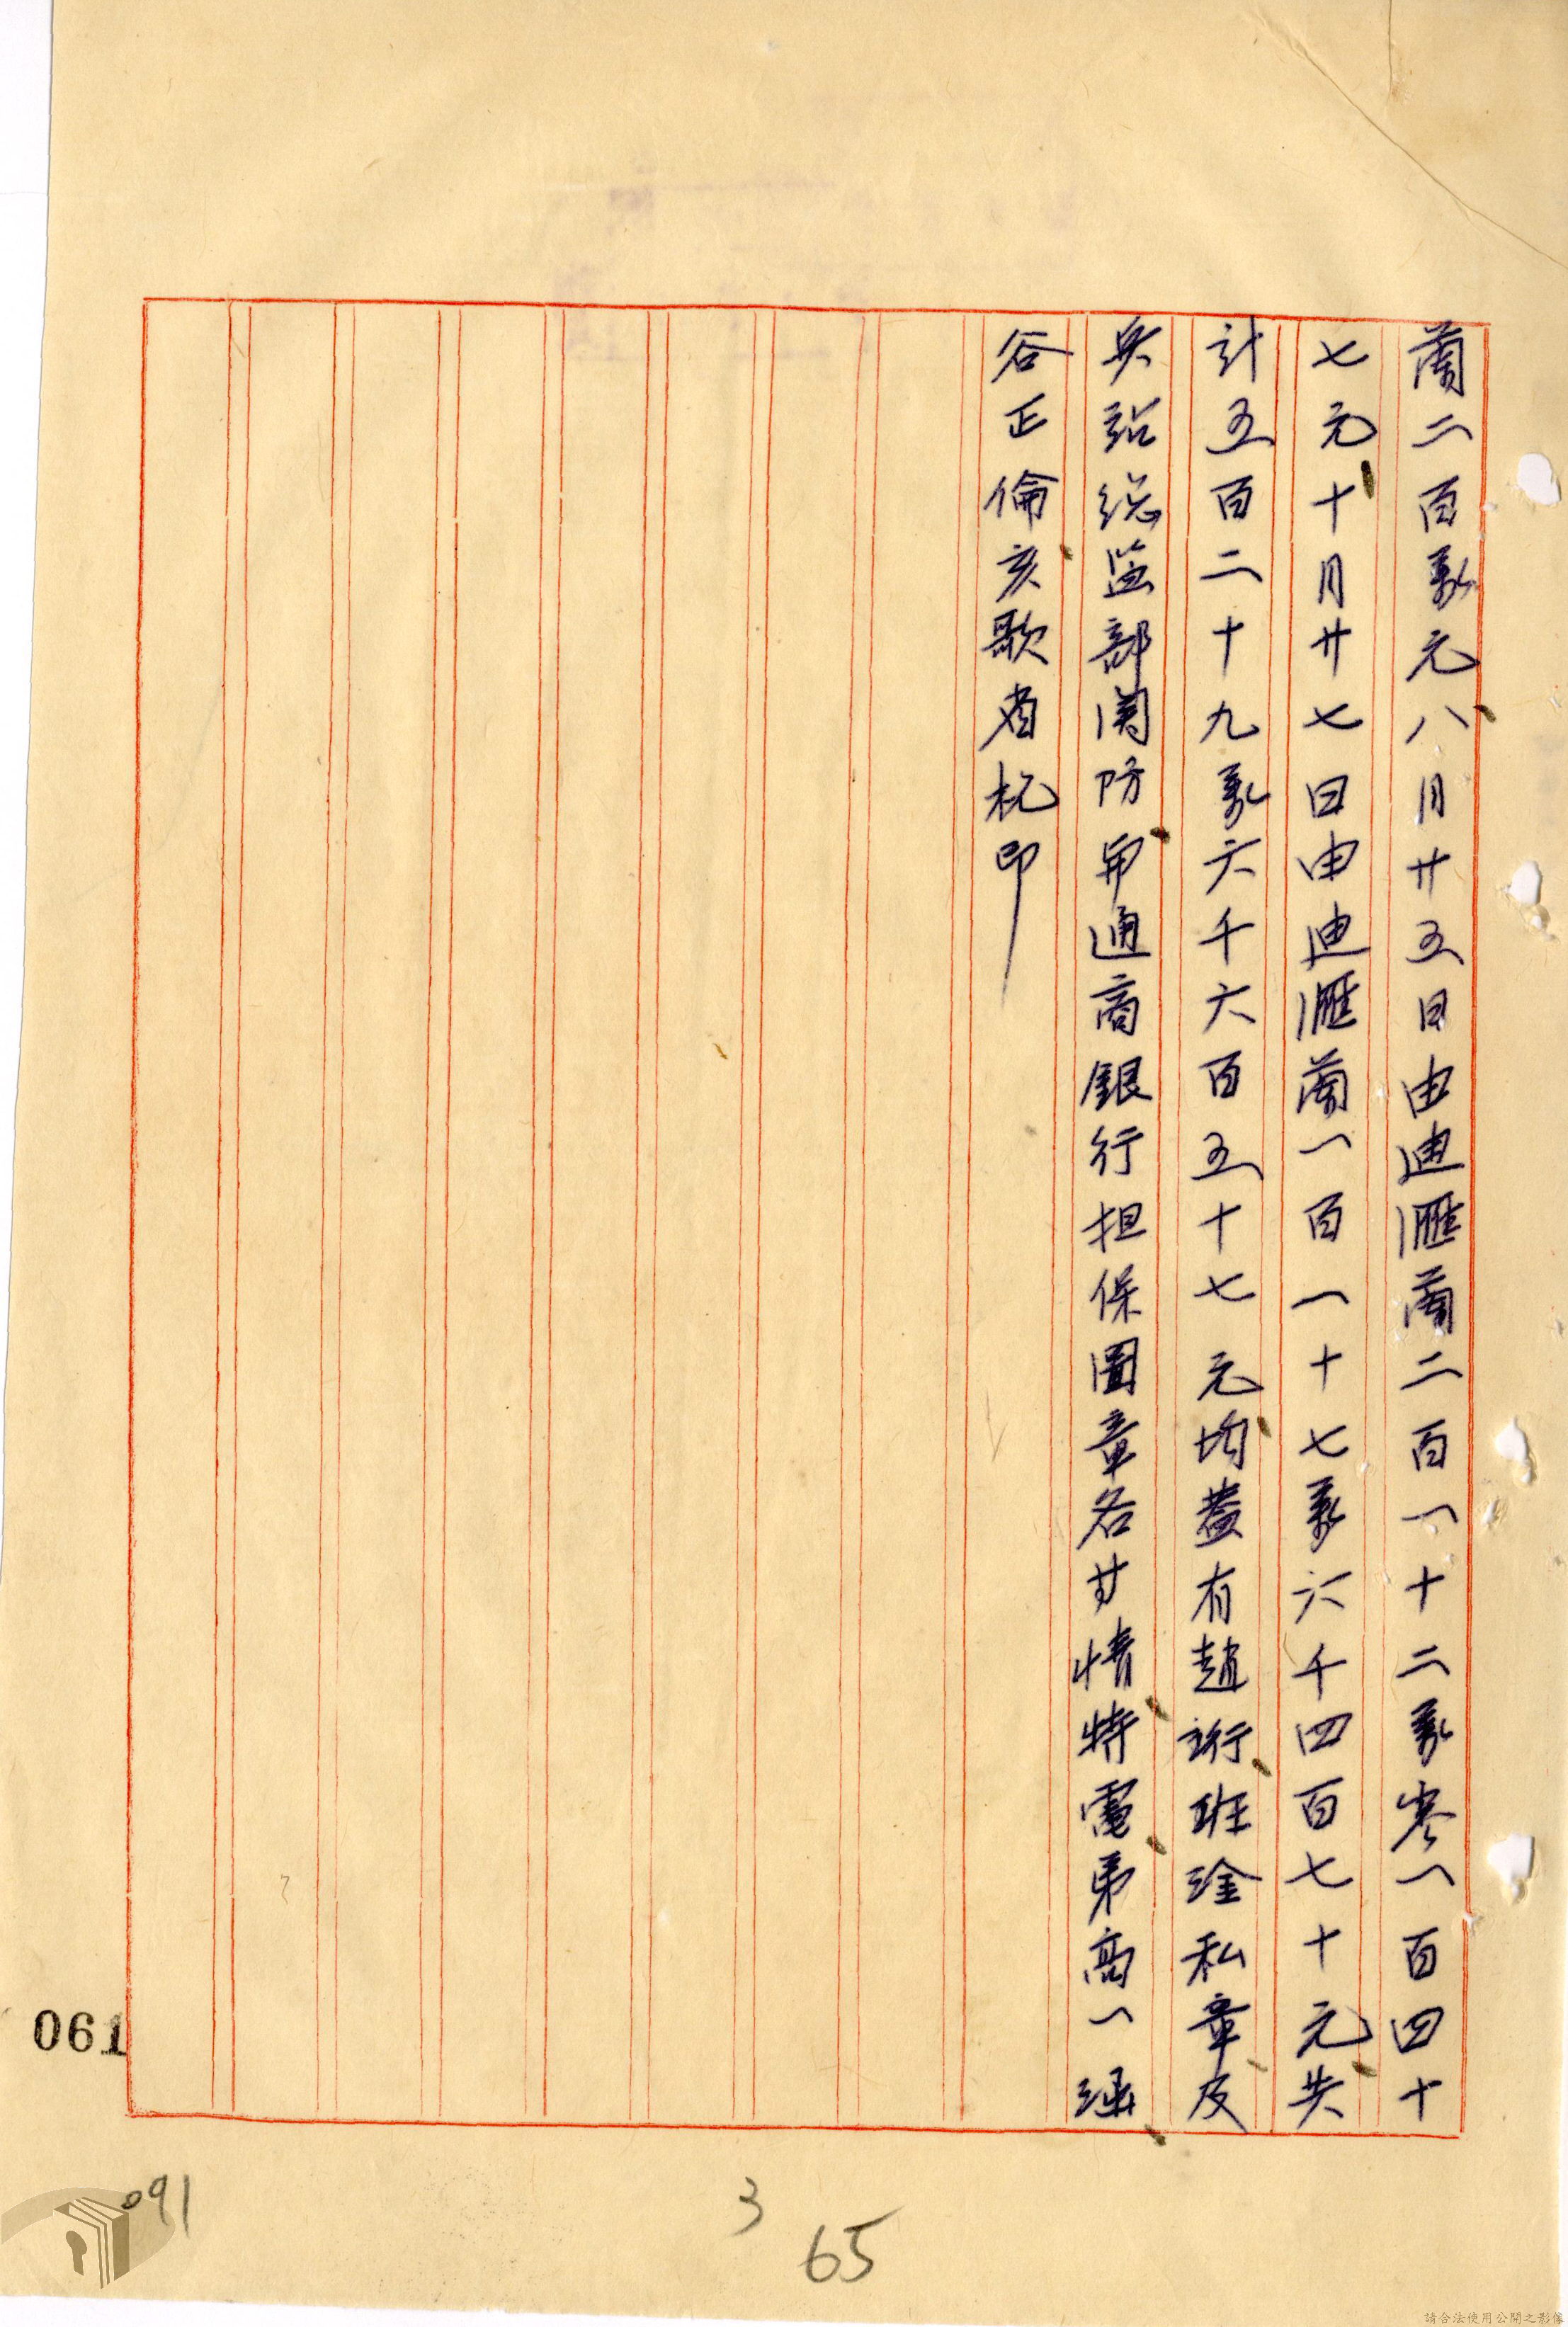 蘭二百萬元八月廿五日由迪滙蘭二百一十二萬零一百四十
七元十月廿七日由迪滙蘭一百一十七萬六千四百七十元共
計五百二十九萬六千六百五十七元均蓋有趙衍班淦私章及
兵站総监部関防通商銀行担保圖章各甘情特電弟高一涵
谷正倫亥歌省机印
061
091
3
65
請合法使用公開之影像